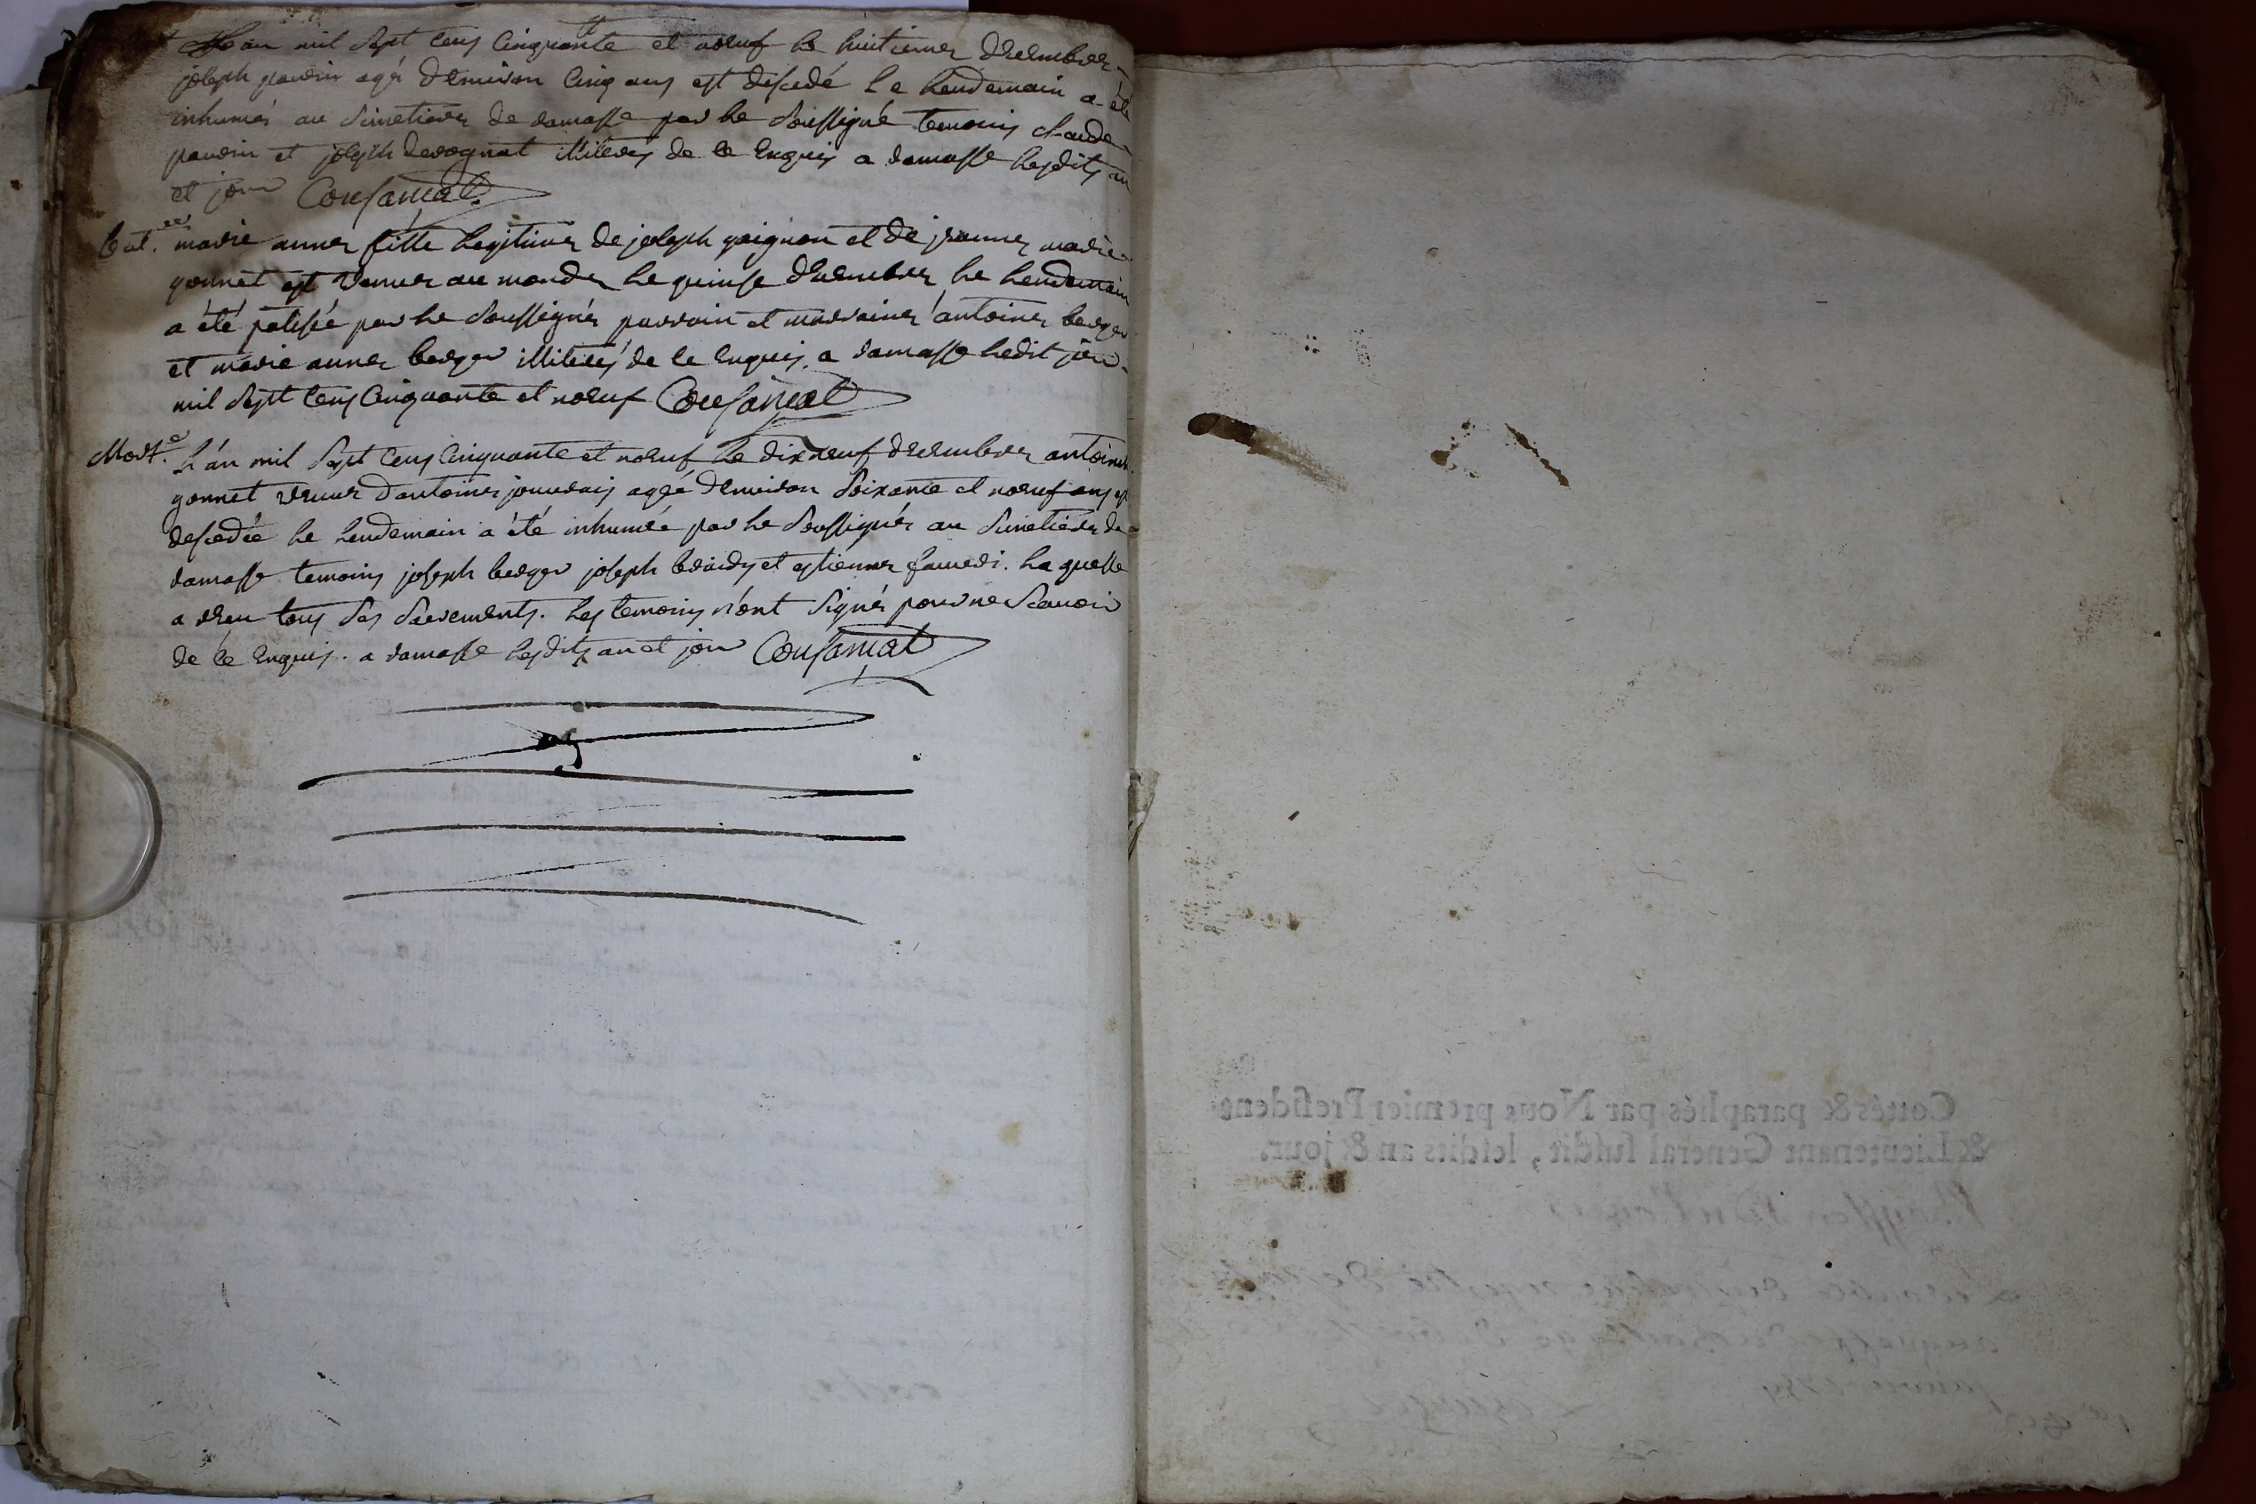 L'an mil sept cens cinquante et noeuf le huitieme decembre
joseph pauvin agé d'environ cinq ans est descedé le lendemain a été
inhumés au simetiere de ramasse par le soussigné temoins claude
pauvin et joseph illiterés de ce enquis a ramasse lesdits an
et jour Cousançat
bat. marie anne fille legitime de joseph goignon et de jeanne marie
gonnet est venue au monde le quinse decembre le lendemain
a été patisée par le soussignés parrain et marraine antoine berger
et marie anne berger illiterés de ce enquis a ramasse ledit jour
mil sept cens cinquante et noeuf Cousançat
Mort. L'an mil sept cens cinquante et noeuf le dixneuf decembre antoinette
gonnet veuve d'antoine jouvrais agée d'environ soixante et noeuf ans est
descedée le lendemain a été inhumée par le soussignés au simetiere de
ramasse temoins joseph berger joseph et estienne. la quelle
a reçu tous ses sacrements. les temoins n'ont signés pour ne scavoir
de ce enquis. a ramasse lesdits an et jour Cousançat
Cottés & paraphés par Nous premier President
& Lieutenant General susdit, lesdits an & jour.